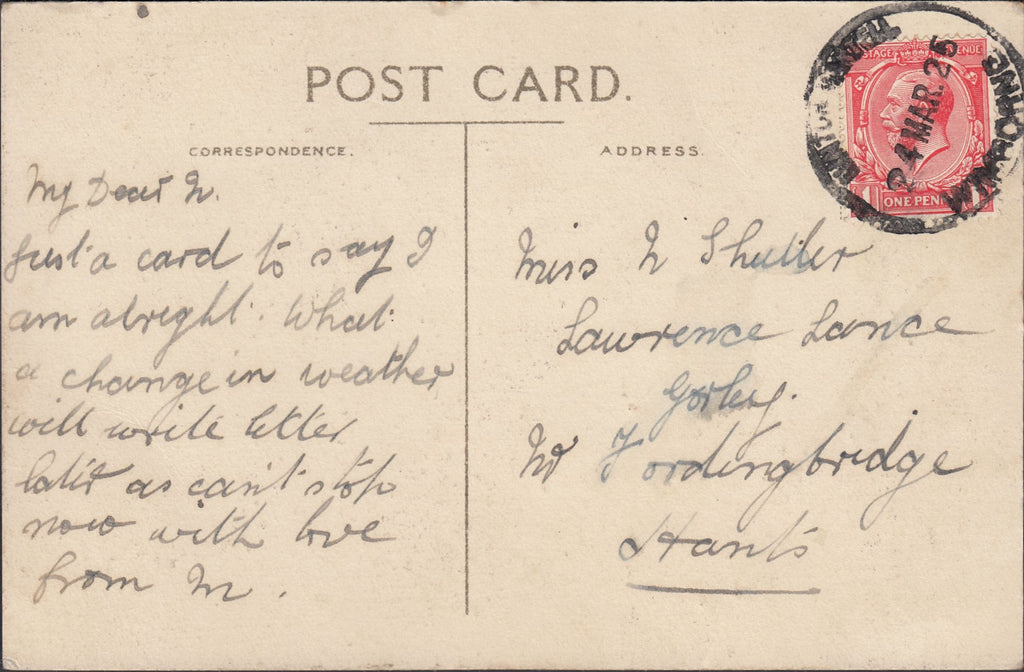 POST CARD.
CORRESPONDENCE.
ADDRESS.
POSTAGE REVENUE
24 MAR. 25
WIMBORNE
ONE PENNY
My Dear N.
Just a card to say I
am alright. What
a change in weather
will write letter
later as can't stop
now with love
from M.
Miss N Shutler
Lawrence Lance
Gorley.
Nr Fordingbridge
Hants